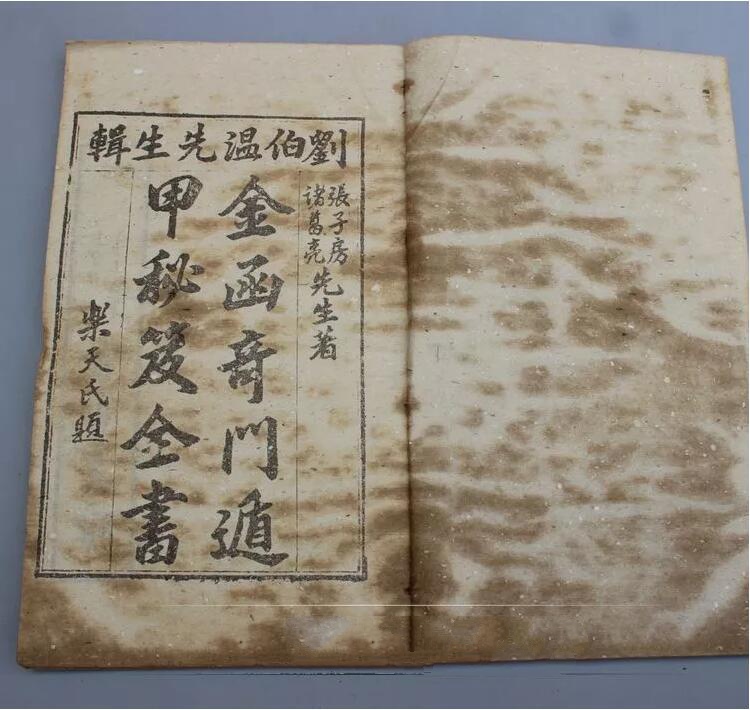 劉伯溫先生輯
張子房
諸葛亮
先生著
金函奇門遁
甲秘笈全書
樂天氏題